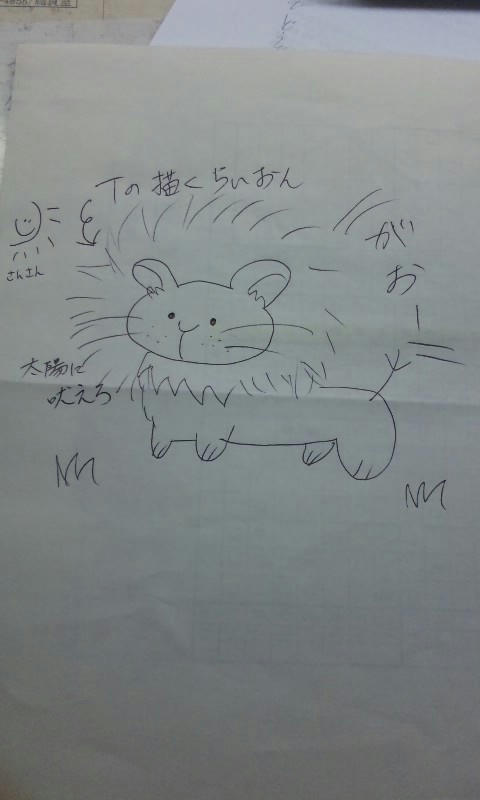 Tの描くらいおん
がおー
さんさん
太陽に
吠えろ